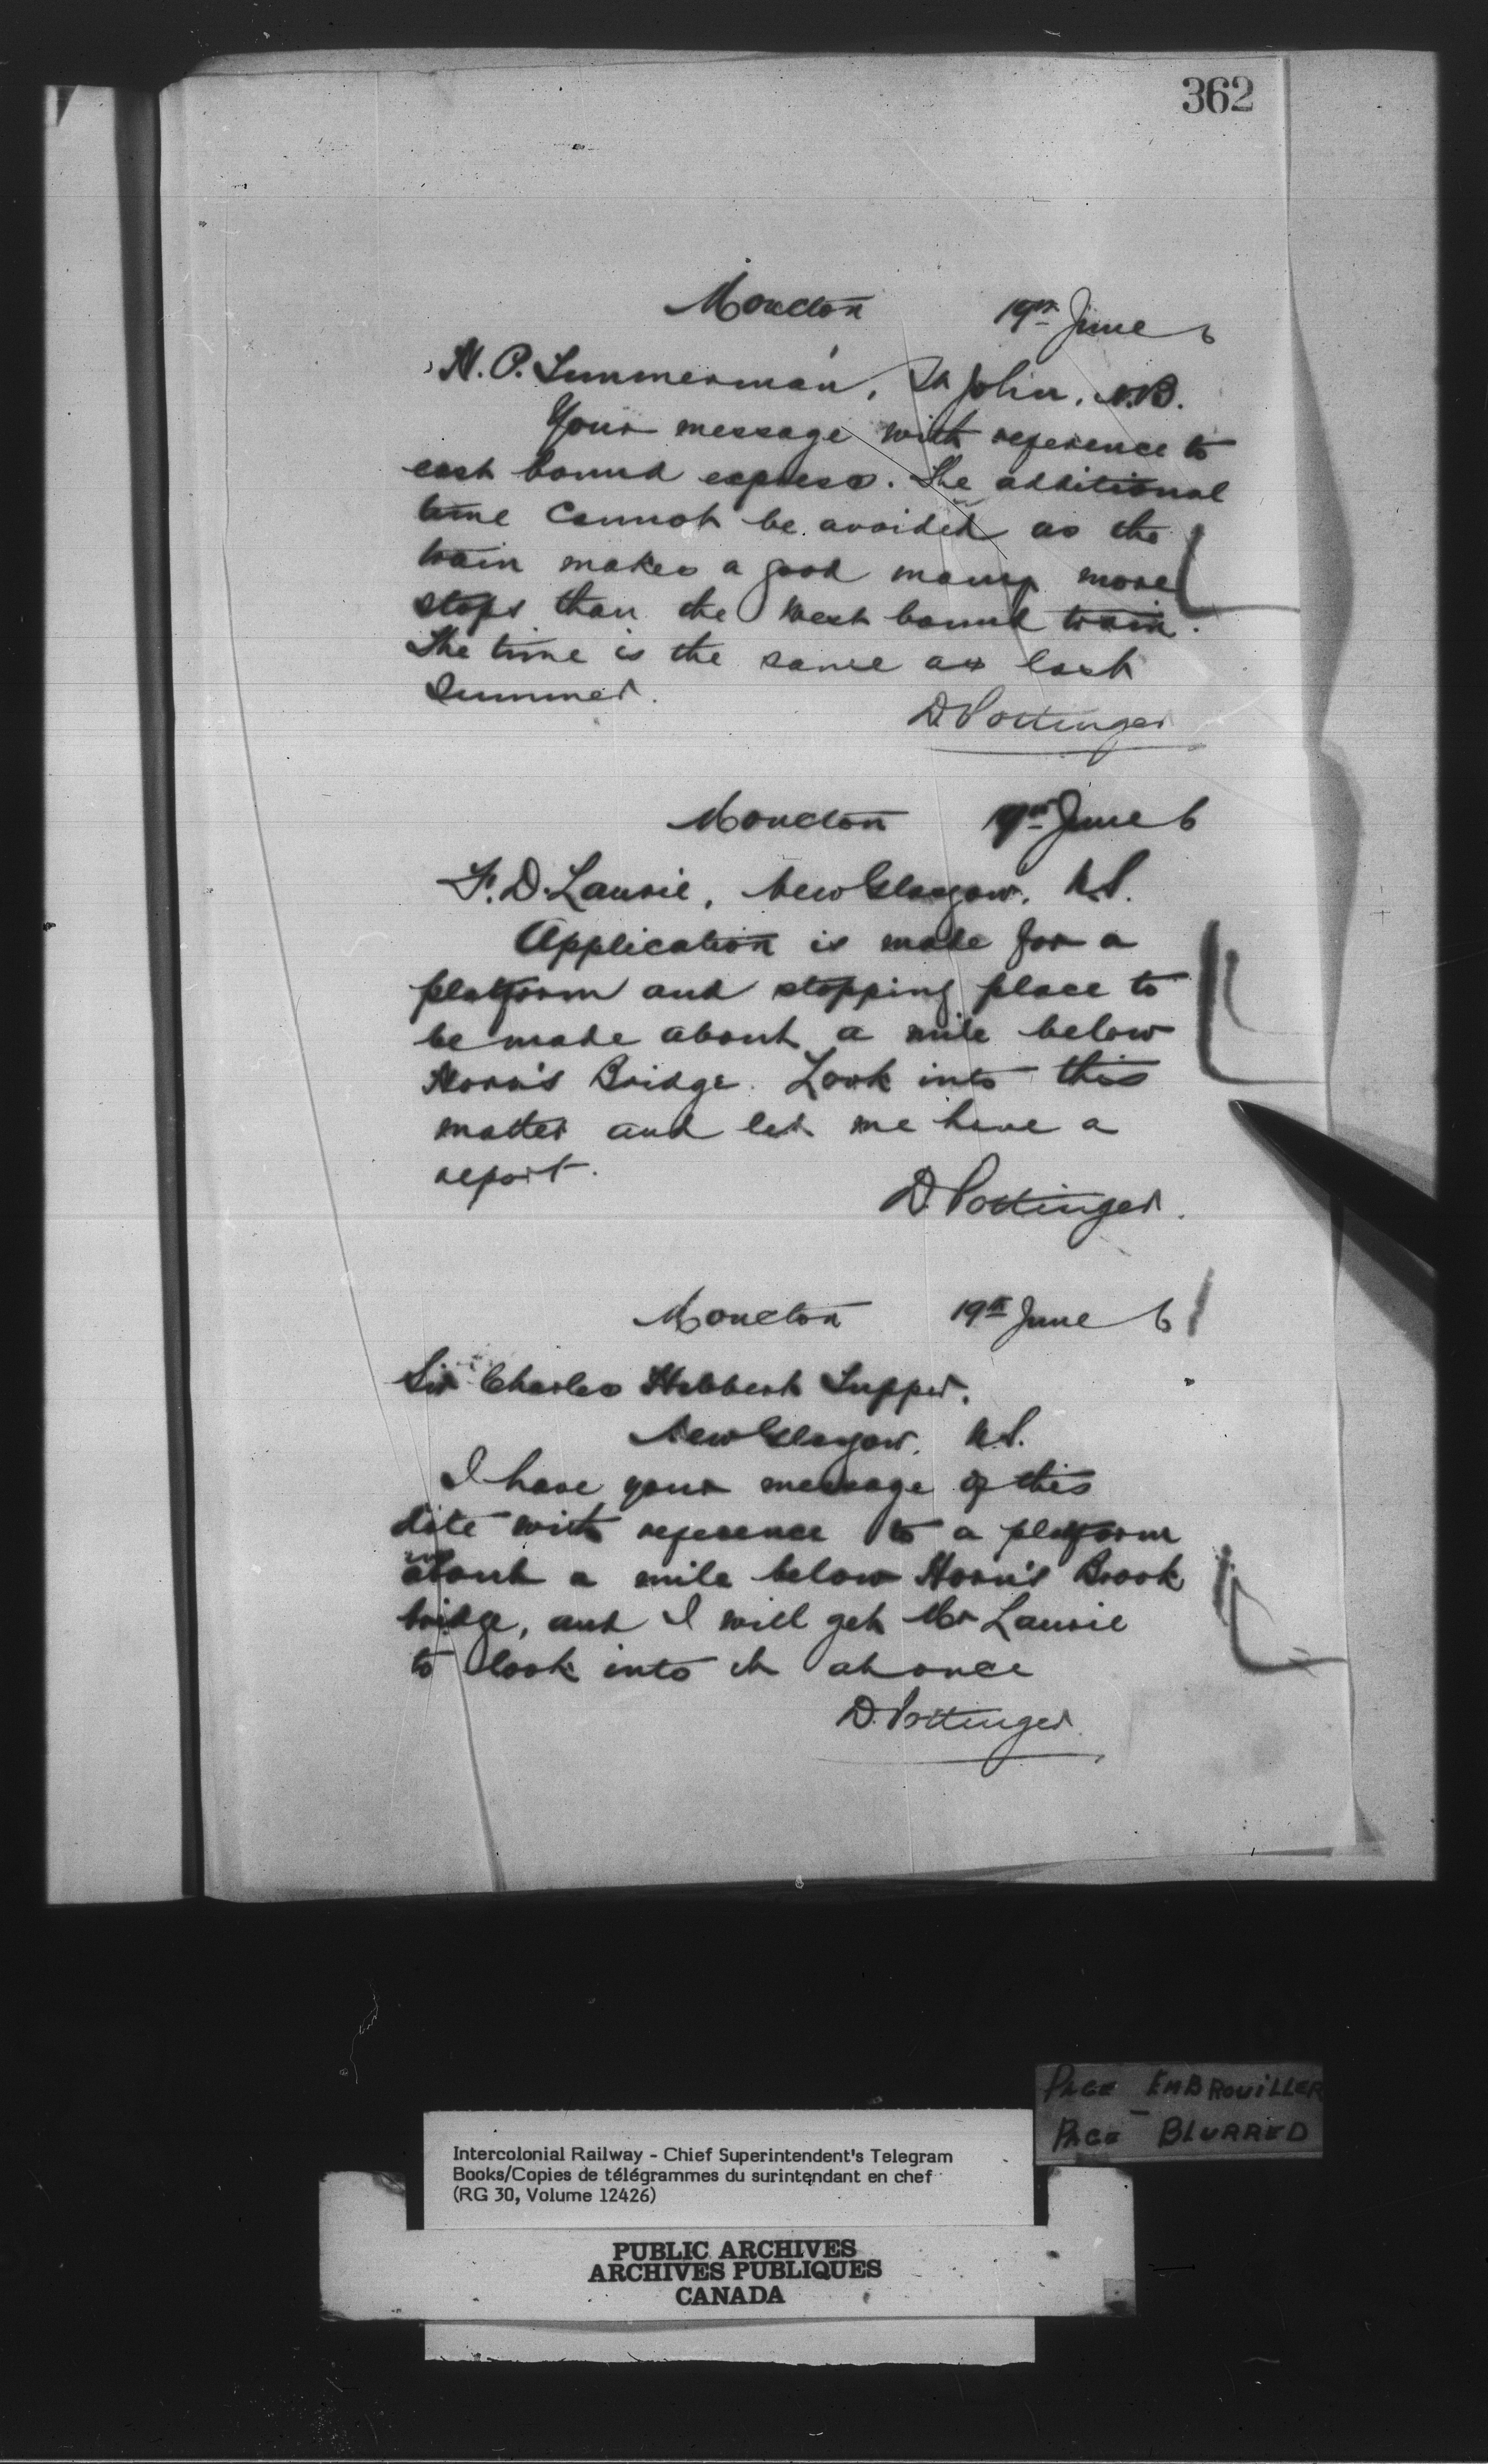 362
Moncton 19th June 6
H. P. Timmerman, St John, N.B.
Your message with reference to
east bound express. The additional
time cannot be avoided as the
train makes a good many more
stops than the west bound train.
The time is the same as last
summer.
D. Pottinger
Moncton 19th June 6
F. D. Laurie, New Glasgow, N.S.
Application is made for a
platform and stopping place to
be made about a mile below
Horn's Bridge. Look into this
matter and let me have a
report.
D. Pottinger.
Moncton 19th June 6
Sir Charles Hibbert Tupper,
New Glasgow, N.S.
I have your message of this
date with reference to a platform
about a mile below Horn's Brook
bridge, and I will get Mr Laurie
to look into it at once
D. Pottinger.
PAGE EMBROUILLER
PAGE BLURRED
Intercolonial Railway - Chief Superintendent's Telegram
Books/Copies de télégrammes du surintendant en chef
(RG 30, Volume 12426)
PUBLIC ARCHIVES
ARCHIVES PUBLIQUES
CANADA